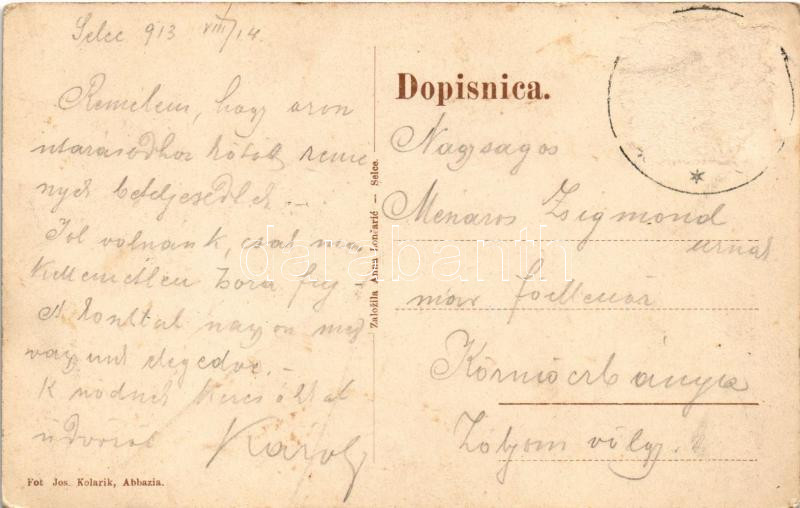 Selce 913 VIII/14.
Remélem, hogy azon
utazásodhoz kötött remé
nyek beteljesedtek –
Jól volnánk, csak
kellemetlen bora fúj –
A koszttal nagyon meg
vagyunk elégedve. –
kézcsókkal
üdvözöl Károly
Fot Jos. Kolarik, Abbazia.
Založila Anna Lončarić – Selce.
Dopisnica.
Nagyságos
Ménáros Zsigmond
urnak
Körmöczbánya
Zólyom völgy.
darabanth